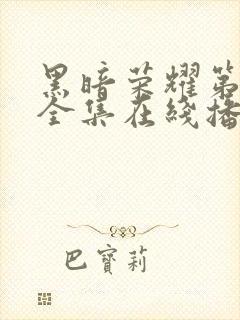 黑暗荣耀第
全集在线播
巴寶莉